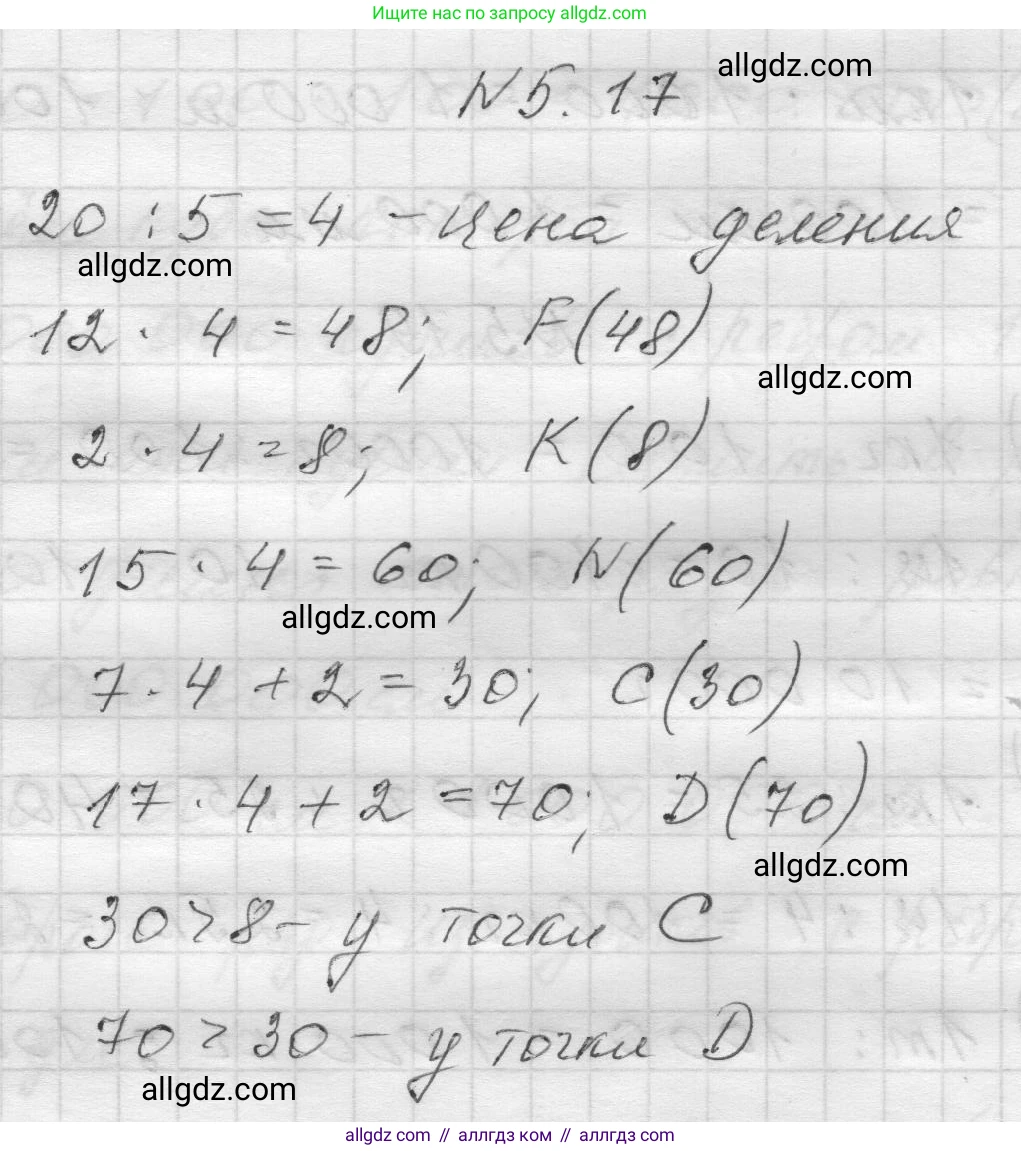 Ищите нас по запросу allgdz.com
allgdz.com
N 5.17
20 : 5 = 4 - цена деления
allgdz.com
12 · 4 = 48; F(48)
allgdz.com
2 · 4 = 8; K(8)
15 · 4 = 60; N(60)
allgdz.com
7 · 4 + 2 = 30; C(30)
17 · 4 + 2 = 70; D(70)
allgdz.com
30 > 8 - у точки C
70 > 30 - у точки D
allgdz.com
allgdz com // аллгдз ком // аллгдз com